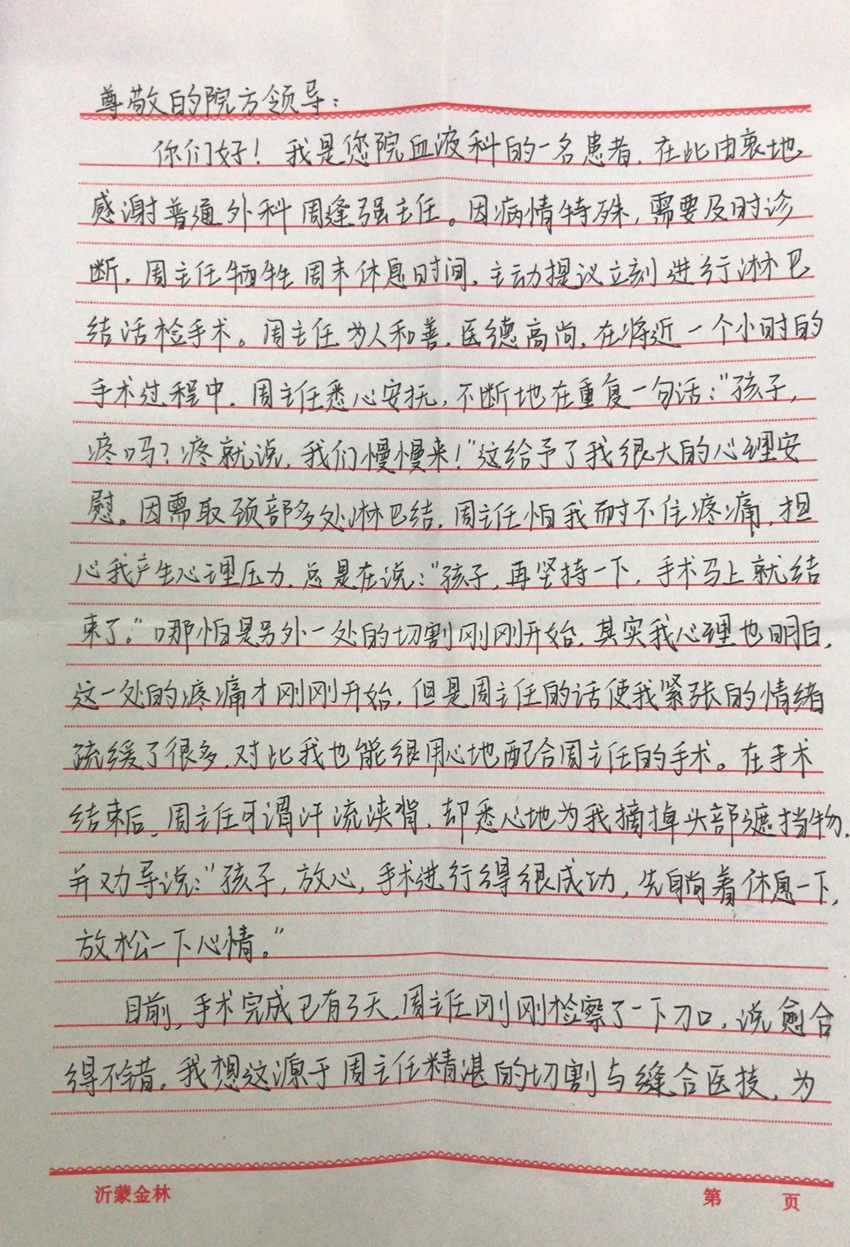 尊敬的院方领导：
你们好！我是您院血液科的一名患者，在此由衷地
感谢普通外科周逢强主任。因病情特殊，需要及时诊
断，周主任牺牲周末休息时间，主动提议立刻进行淋巴
结活检手术。周主任为人和善，医德高尚，在将近一个小时的
手术过程中，周主任悉心安抚，不断地在重复一句话：“孩子，
疼吗？疼就说，我们慢慢来！”这给予了我很大的心理安
慰。因需取颈部多处淋巴结，周主任怕我耐不住疼痛，担
心我产生心理压力，总是在说：“孩子，再坚持一下，手术马上就结
束了。”哪怕是另外一处的切割刚刚开始，其实我心理也明白，
这一处的疼痛才刚刚开始，但是周主任的话使我紧张的情绪
疏缓了很多，对比我也能很用心地配合周主任的手术。在手术
结束后，周主任可谓汗流浃背，却悉心地为我摘掉头部遮挡物，
并劝导说：“孩子，放心，手术进行得很成功，先躺着休息一下，
放松一下心情。”
目前，手术完成已有3天，周主任刚刚检察了一下刀口，说愈合
得不错，我想这源于周主任精湛的切割与缝合医技，为
沂蒙金林
第 页